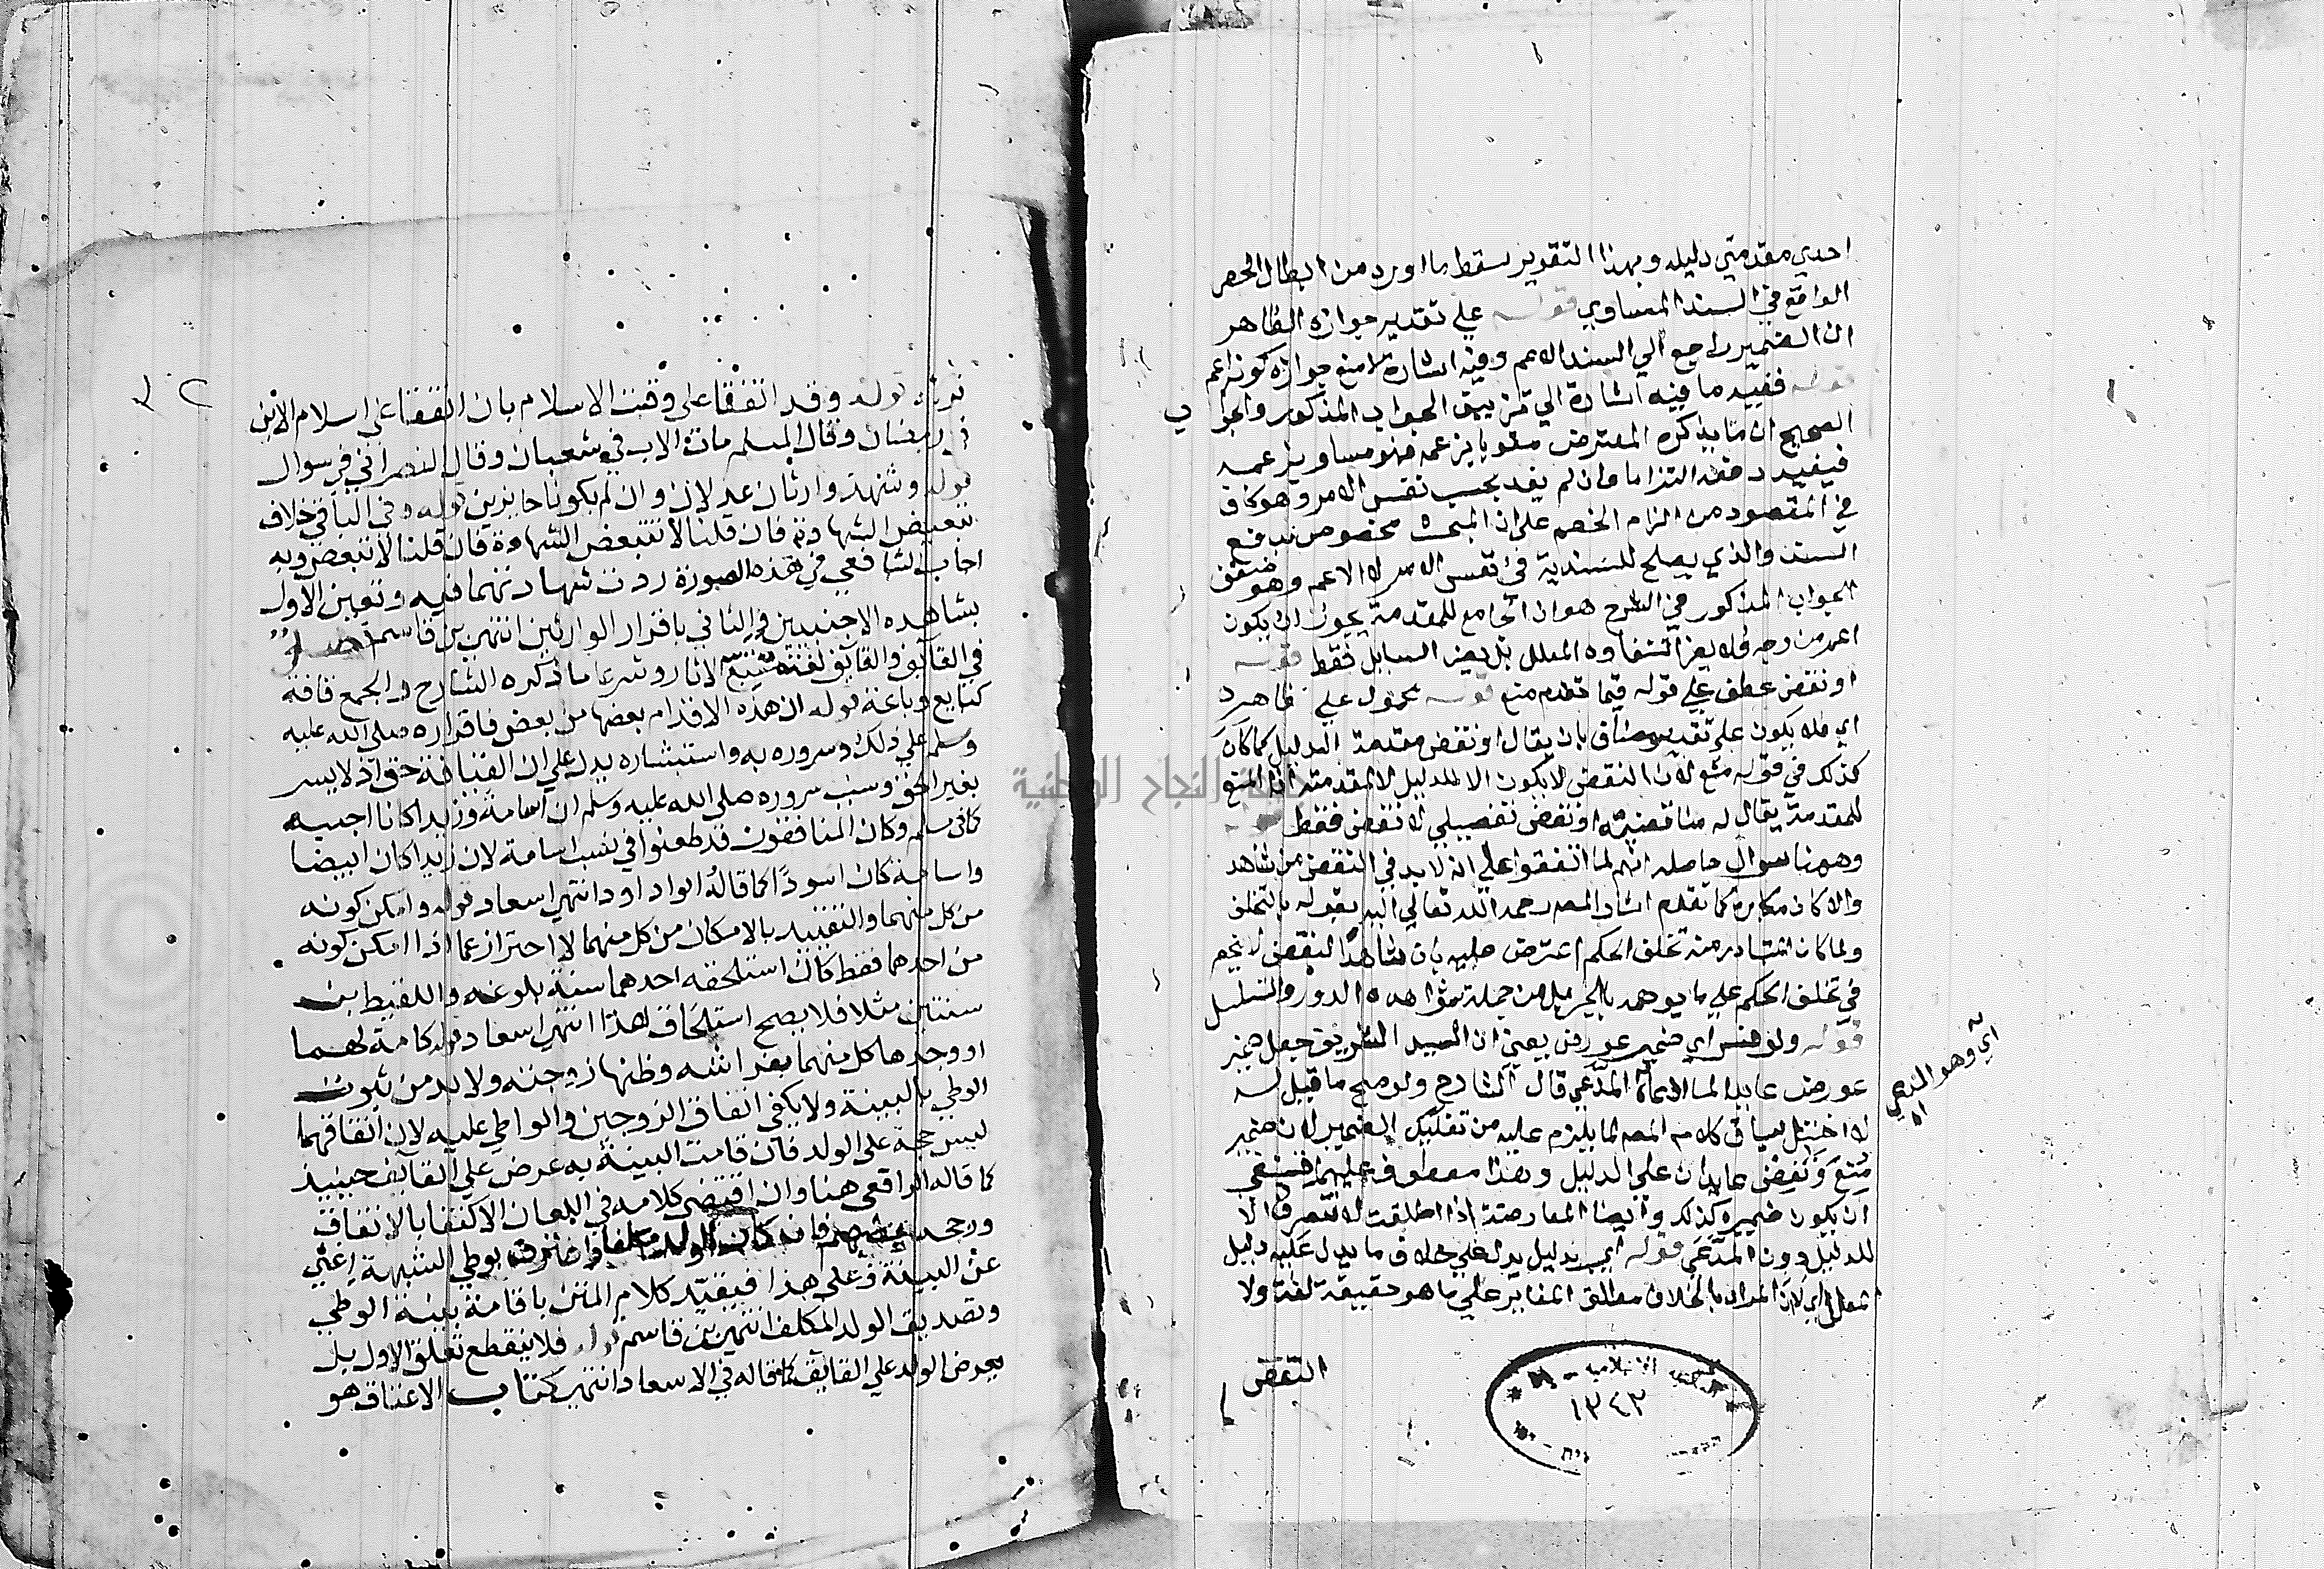 احدي مقدمتي دليله وبهذا التقدير سقط ما اورد من ابطال الحصر
الواقع في السند المساوي قوله علي تقدير جوازه الظاهر
ان الضمير راجع الي السند الاعم وفيه اشارة لا منع جوازه كونه اعم
قوله ففيه ما فيه اشارة الي تزييف الجواب المذكور والجواب
الصحيح ان ما يذكره المعترض مقويا بزعمه فهو مساو بزعمه
فيفيد دفعه التزاما وان لم يفد بحسب نفس الامر وهو كاف
في المقصود من الزام الخصم علي ان المبحث مخصوص بدفع
السند والذي يصلح للسندية في نفس الامر لا الاعم وهو
الجواب المذكور في الشرح هو ان الجامع للمقدمة يجوز ان يكون
اعم من وجه فلا يضر انتفاوه المعلل بل يضر السايل فقط قوله
او نقض عطف علي قوله فيما تقدم منع قوله محمول علي ظاهره
اي فلا يكون علي تقدير مضاف بان يقال او نقض مقدمة الدليل كما كان
كذلك في قوله منع لان النقض لا يكون الا للدليل لا لمقدمته اذ المنع
للمقدمة يقال له مناقضة او نقض تفصيلي لا نقض فقط
وههنا سوال حاصله انهم لما اتفقوا علي انه لا بد في النقض من شاهد
والا كان مكابرة كما تقدم اشار المصه رحمه الله تعالي اليه بقوله بالتخلف
ولما كان المتبادر منه تخلف الحكم اعترض عليه بان شاهد النقض لا ينحصر
في تخلف الحكم علي ما يوهمه بل من جملة شواهده الدور والتسلسل
قوله ولو فسر اي ضمير عورض يعني ان السيد الشريف جعل ضمير
عورض عايدا لما الادعاة المدعي قال الشارح ولو صح ما قيل له
اي وهو المدعي اه
لا اختل سياق كلام المصه لما يلزم عليه من تفكيك الضمير لان ضمير
منع ونقض عايدان علي الدليل وهذا معطوف عليهما فينبغي
ان يكون ضميره كذلك وايضا المعارضة اذا اطلقت لا تنصرف الا
للدليل دون المدعي قوله اي بدليل يدل علي خلاف ما يدل عليه دليل
المعلل اي لان المراد بالخلاف مطلق المغاير علي ما هو حقيقة لغة ولا
النقض
١٣٤٣
النجاح الوطنية
قوله وقد اتفقا علي وقت الاسلام بان اتفقنا علي اسلام الابن
في رمضان وقال المسلم مات الاب في شعبان وقال النصراني في سوال
قوله وشهد وارثان عدلان وان لم يكونا حايزين قوله وفي الباقي خلاف
تبعيض الشهادة فان قلنا لا تتبعض الشهادة فان قلنا لا تتبعض وبه
اجاب الشافعي في هذه الصورة ردت شهادتهما فيه وتعين الاول
بشاهده الاجنبيين والثاني باقرار الوارثين انتهي بن قاسم
في القايف والقايف لغة متتبع الاثار وشرعا ما ذكره الشارح والجمع قافة
كبايع وباعة قوله ان هذه الاقدام بعضها من بعض فاقراره صلي الله عليه
وسلم علي ذلك وسروره به واستبشاره يدل علي ان القيافة حق اذ لا يسر
بغير الحق وسبب سروره صلي الله عليه وسلم ان اسامة وزيدا كانا اجنبيه
كما في مسلم وكان المنافقون قد طعنوا في نسب اسامة لان زيدا كان ابيضا
واسامة كان اسودا كما قاله ابو داود انتهي اسعاد قوله وامكن كونه
من كل منهما والتقييد بالامكان من كل منهما لا احتراز عما اذا امكن كونه
من احدهما فقط كان استلحقه احدهما سنة بلوغه واللقيط بن
سنتين مثلا فلا يصح استلحاق هذا انتهي اسعاد قوله كامة لهما
او وجدها كل منهما بفراشه وظنها زوجته ولا بد من ثبوت
الوطي بالبينة ولا يكفي اتفاق الزوجين والواطي عليه لان اتفاقهما
ليس حجة علي الولد فان قامت البينة به عرض علي القايف حينيذ
كما قاله الرافعي هنا وان اقتضي كلامه في اللعان الاكتفا بالاتفاق
ورجحه بعضهم فان كان الولد مكلفا واعترف بوطي الشبهة اغني
عن البينة وعلي هذا فيقيد كلام المتن باقامة بينة الوطي
وتصديق الولد المكلف انتهي بن قاسم قوله فلا ينقطع تعلق الاول بل
يعرض الولد علي القايف كما قاله في الاسعاد انتهي كتاب الاعتاق هو